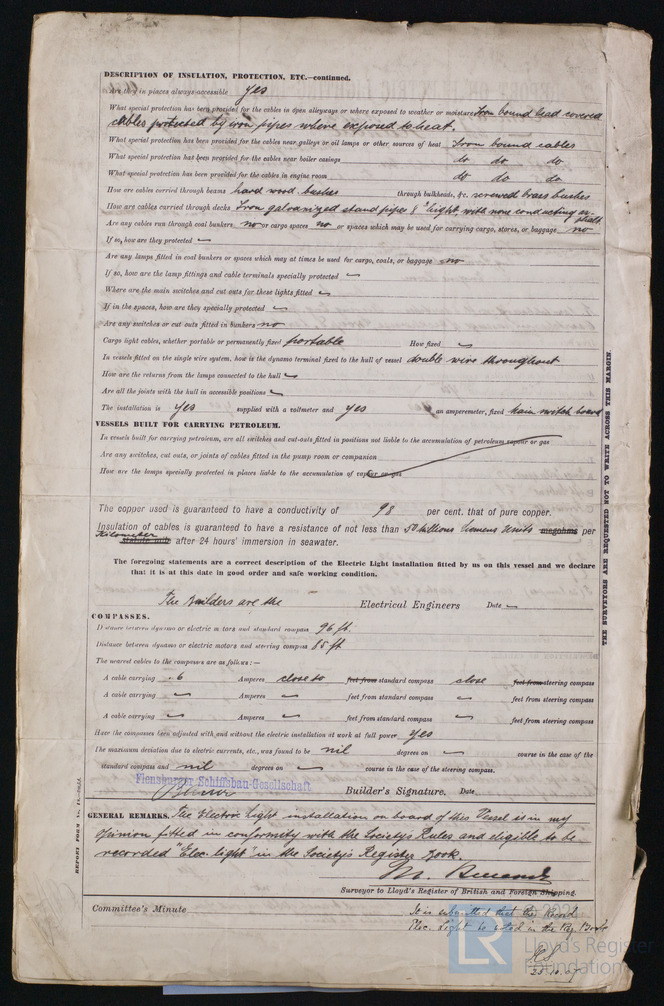 DESCRIPTION OF INSULATION, PROTECTION, ETC.—continued.
Are they in places always accessible yes
What special protection has been provided for the cables in open alleyways or where exposed to weather or moisture Iron bound lead covered
cables protected by iron pipes where exposed to heat.
What special protection has been provided for the cables near galleys or oil lamps or other sources of heat Iron bound cables
What special protection has been provided for the cables near boiler casings do do do
What special protection has been provided for the cables in engine room do do do
How are cables carried through beams hard wood bushes through bulkheads, &c. screwed brass bushes
How are cables carried through decks Iron galvanized stand pipes 8" hight with non conducting
Are any cables run through coal bunkers no or cargo spaces no or spaces which may be used for carrying cargo, stores, or baggage no
If so, how are they protected —
Are any lamps fitted in coal bunkers or spaces which may at times be used for cargo, coals, or baggage no
If so, how are the lamp fittings and cable terminals specially protected —
Where are the main switches and cut outs for these lights fitted —
If in the spaces, how are they specially protected —
Are any switches or cut outs fitted in bunkers no
Cargo light cables, whether portable or permanently fixed portable How fixed —
In vessels fitted on the single wire system, how is the dynamo terminal fixed to the hull of vessel double wire throughout
How are the returns from the lamps connected to the hull —
Are all the joints with the hull in accessible positions —
The installation is yes supplied with a voltmeter and yes an amperemeter, fixed Main switch board
VESSELS BUILT FOR CARRYING PETROLEUM.
In vessels built for carrying petroleum, are all switches and cut-outs fitted in positions not liable to the accumulation of petroleum vapour or gas
Are any switches, cut outs, or joints of cables fitted in the pump room or companion
How are the lamps specially protected in places liable to the accumulation of vapour or gas
The copper used is guaranteed to have a conductivity of 98 per cent. that of pure copper.
Insulation of cables is guaranteed to have a resistance of not less than 50 millions Siemens Units megohms per
Kilometer
statute mile after 24 hours' immersion in seawater.
The foregoing statements are a correct description of the Electric Light installation fitted by us on this vessel and we declare
that it is at this date in good order and safe working condition.
The Builders are the Electrical Engineers Date —
COMPASSES.
Distance between dynamo or electric motors and standard compass 96 ft.
Distance between dynamo or electric motors and steering compass 85 ft
The nearest cables to the compasses are as follows:—
A cable carrying .6 Amperes close to feet from standard compass close feet from steering compass
A cable carrying — Amperes — feet from standard compass — feet from steering compass
A cable carrying — Amperes — feet from standard compass — feet from steering compass
Have the compasses been adjusted with and without the electric installation at work at full power yes
The maximum deviation due to electric currents, etc., was found to be nil degrees on — course in the case of the
standard compass and nil degrees on — course in the case of the steering compass.
Flensburger Schiffsbau-Gesellschaft
Builder's Signature. Date
GENERAL REMARKS. The Electric Light installation on board of this Vessel is in my
opinion fitted in conformity with the Society's Rules and eligible to be
recorded "Elec. light" in the Society's Register Book.
Surveyor to Lloyd's Register of British and Foreign Shipping.
Committee's Minute
It is submitted that the Record
Elec. Light be noted in the Reg. Book
25.10.07
THE SURVEYORS ARE REQUESTED NOT TO WRITE ACROSS THIS MARGIN.
LR
Lloyd's Register
Foundation